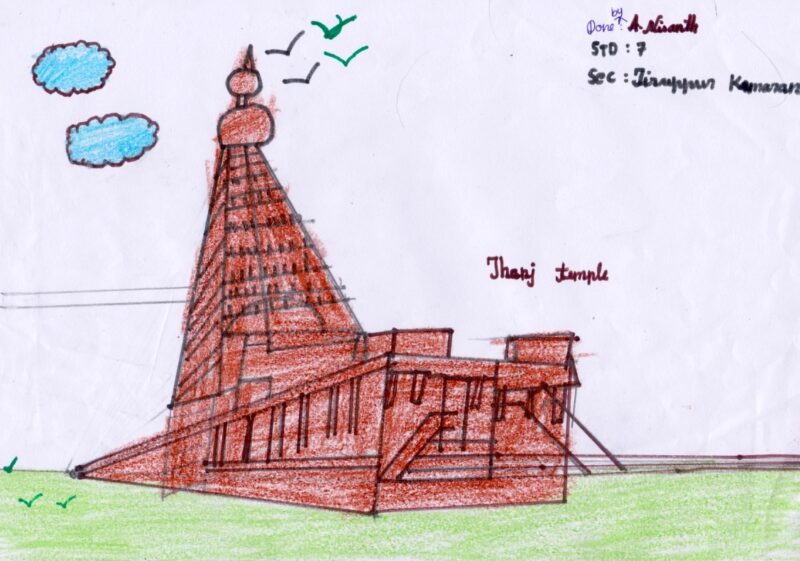 Done by: A. Nisanth
STD : 7
Sec : Tiruppur Kumaran
Thanj temple